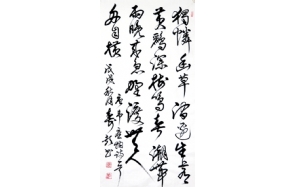 獨憐幽草澗邊生上有
黃鸝深樹鳴春潮帶
雨晚來急野渡無人
舟自橫
唐韋應物詩